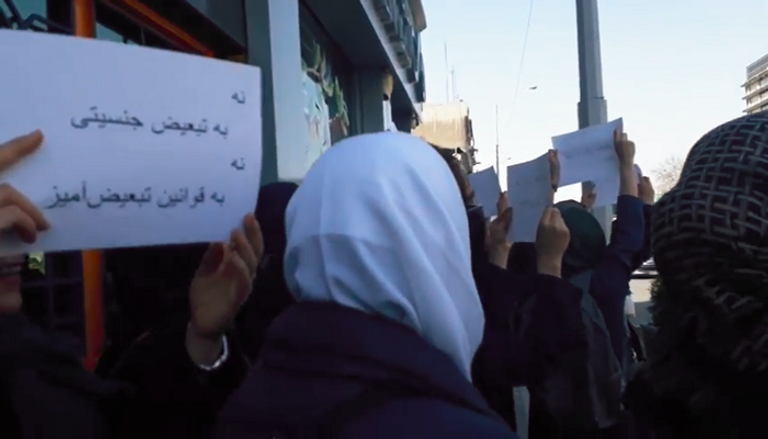 نه
به تبعیض جنسیتی
نه
به قوانین تبعیض‌آمیز